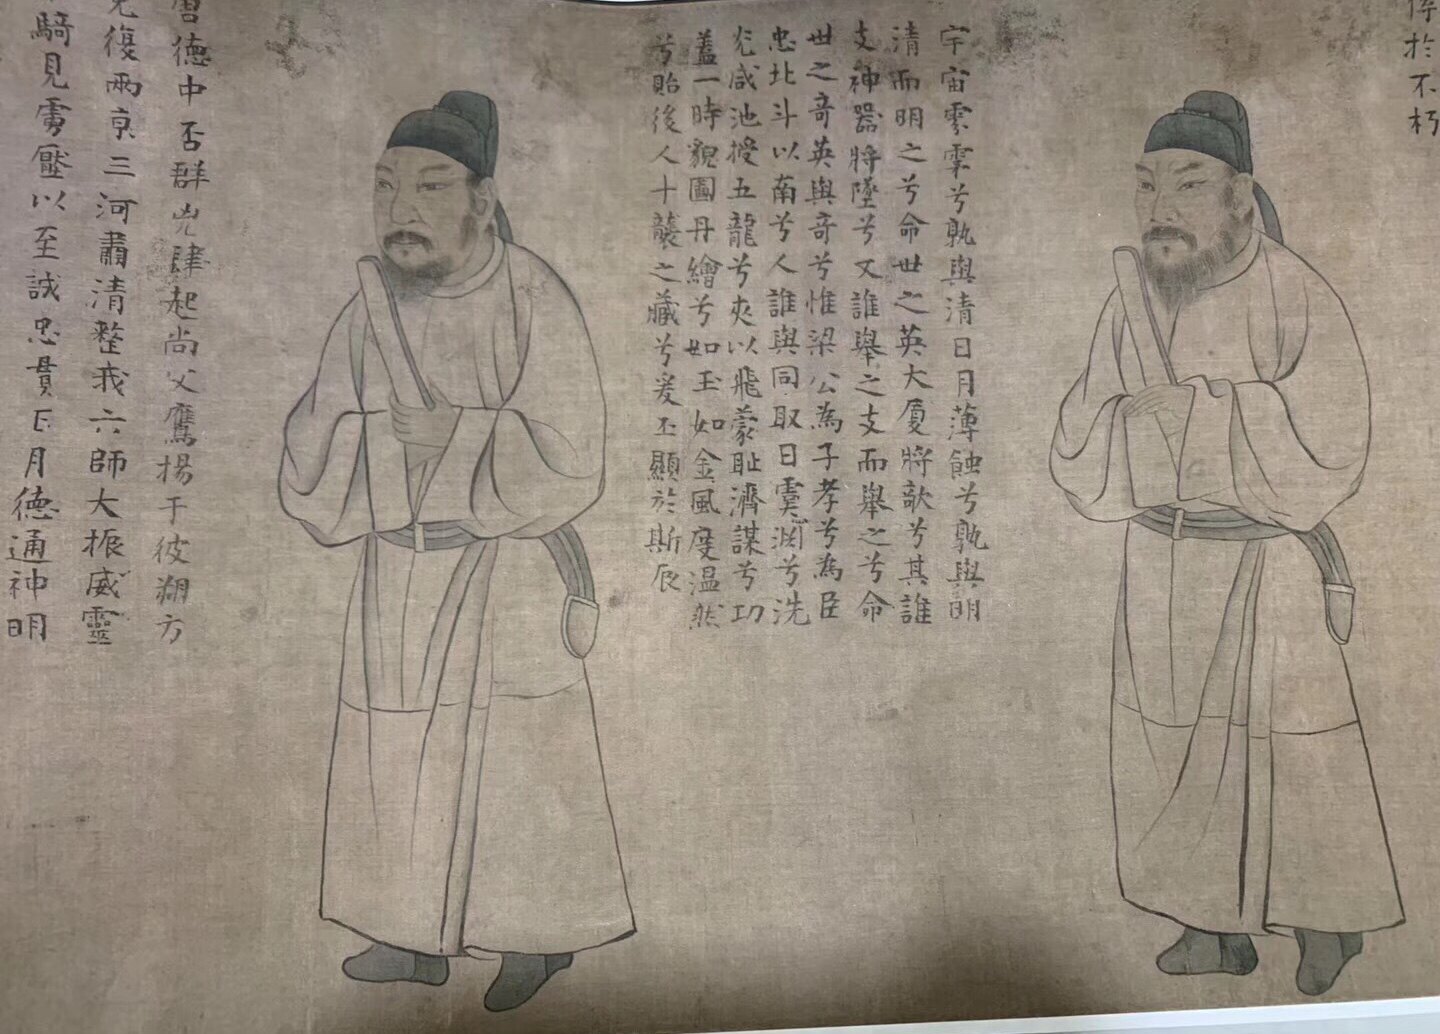 於不朽
宇宙兮孰與清日月薄蝕兮孰與明
清而明之兮命世之英大厦將欹兮其誰
支神器將墜兮又誰舉之支而舉之兮命
世之奇英與奇兮惟梁公為子孝兮為臣
忠北斗以南兮人誰與同取日虞淵兮洗
光咸池授五龍兮夾以飛蒙耻濟謀兮功
蓋一時貌圖丹繪兮如玉如金風度温然
兮貽後人十襲之藏兮爰丕顯於斯辰
唐德中否群兇肆起尚父鷹揚于彼朔方
克復兩京三河肅清整我六師大振威靈
騎見虜壓以至誠忠貫日月德通神明